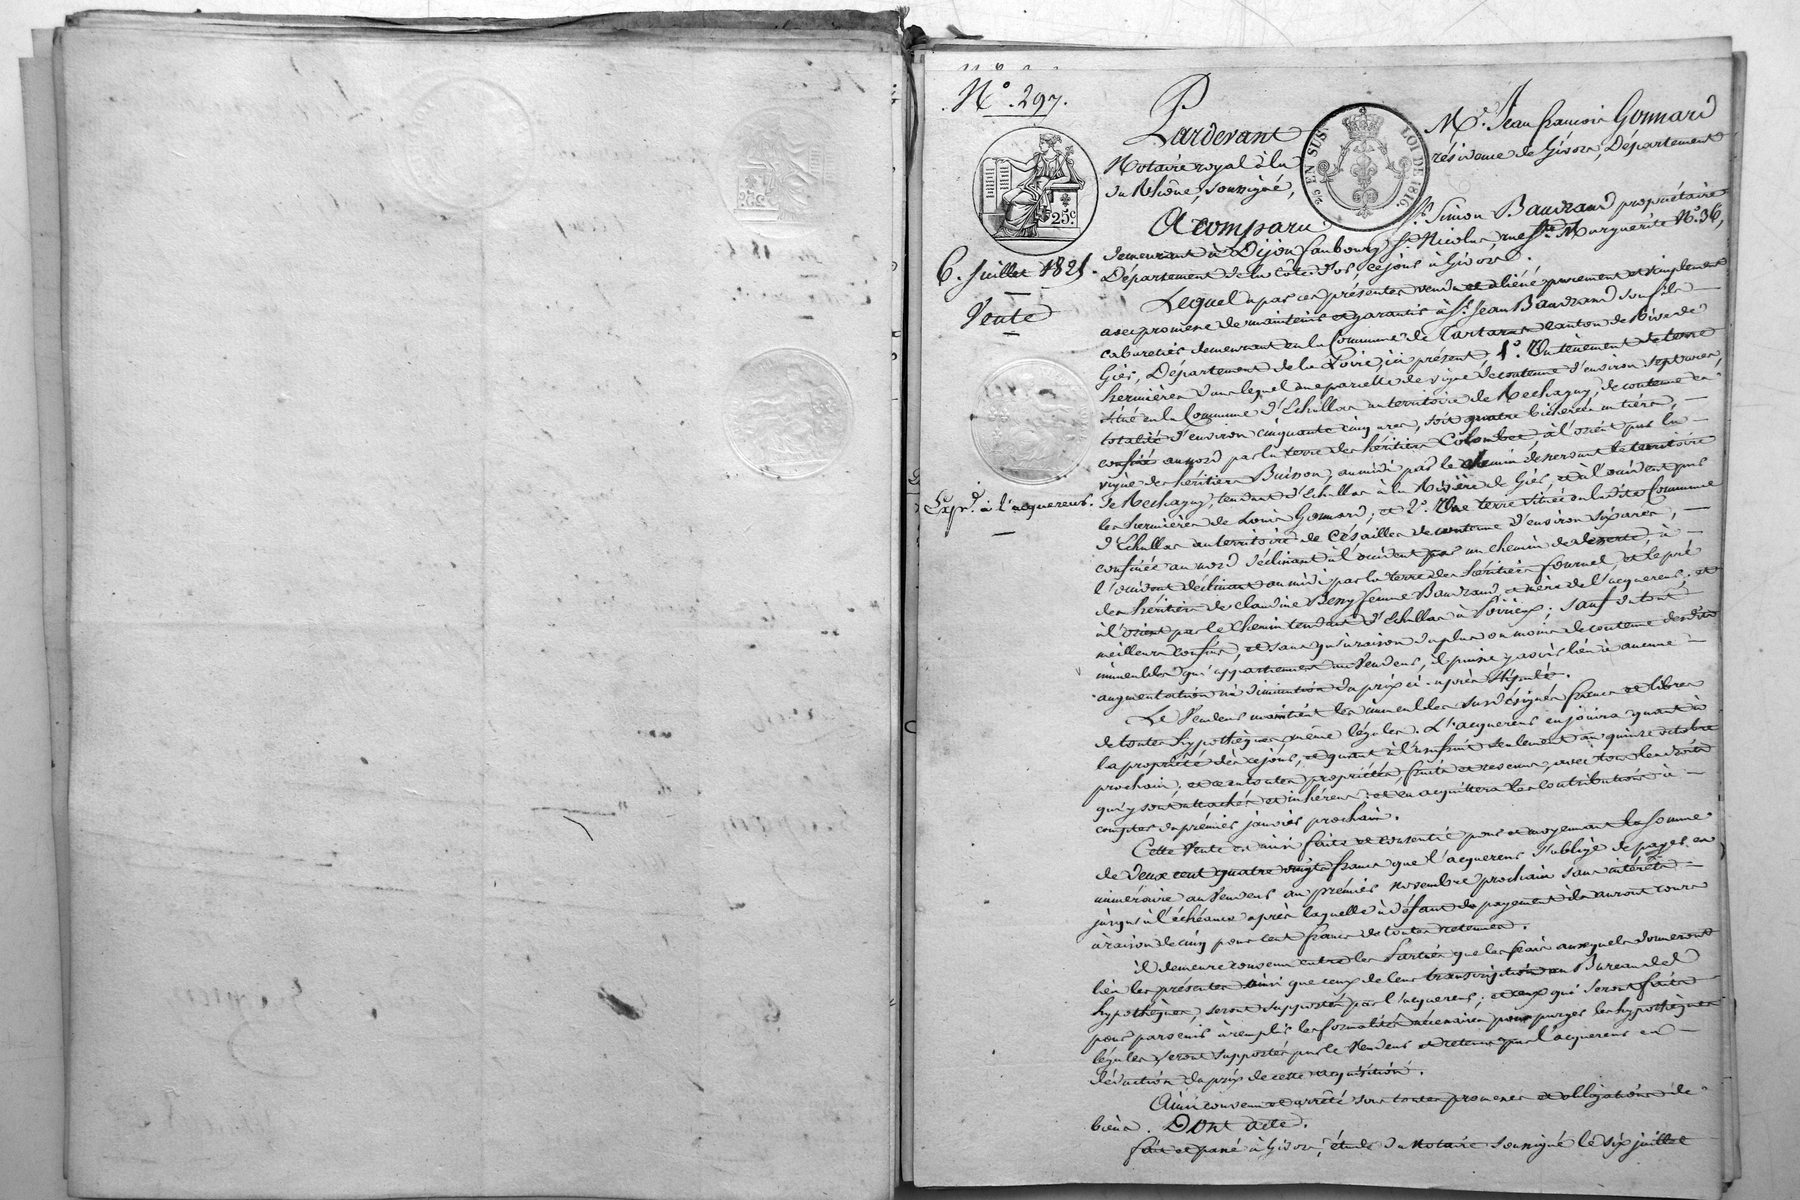 N.° 297.
25.c
6. Juillet 1821.
Vente
Exp.on à l'acquéreur.
25 EN SUS. LOI DE 1816.
Pardevant M.e Jean francois Gonnard
Notaire royal à la résidence de Givors, Département
du Rhône, soussigné,
A comparu S.r Simon Baudrand propriétaire
demeurant à Dijon faubourg S.t Nicolas, rue S.te Marguérite N.° 36,
Département de la Côte-d'or, cejour à Givors.
Lequel a par ces présentes vendu et aliéné purement et simplement
avec promesse de maintenir et garantir à S.r Jean Baudrand son fils
cabaretier demeurant en la Commune de Tartaras canton de Rive de
Gier, Département de la Loire, ici présent, 1.° Un tènement de terre
hermières dans lequel une parcelle de vigne de contenue d'environ sept ares,
situé en la Commune d'Echallas au territoire de Rechagny, de contenue en
totalité d'environ cinquante cinq ares, soit quatre bicherées un tiers,
confiné au nord par la terre des héritiers Colombet, à l'orient par la
vigne des héritiers Buisson, au midi par le chemin desservant le territoire
de Rechagny, tendant d'Echallas à la Rivière de Gier, et à l'occident par
les hermières de Louis Gonnard; et 2.° Une terre située en la dite Commune
d'Echallas au territoire de Césailles de contenue d'environ six ares,
confinée au nord déclinant à l'occident par un chemin de desserte, à
l'occident déclinant au midi par la terre des héritiers fournel, et le pré
des héritiers de claudine Beny femme Baudrand, et mère de l'acquéreur, et
à l'orient par le chemin tendant d'Echallas à Loirieux; sauf de tout
meilleurs confins, et sans qu'à raison du plus ou moins de contenue desdits
immeubles qui appartiennent au Vendeur, il puisse y avoir lieu à aucune
augmentation ni diminution du prix ci-après stipulé.
Le Vendeur maintient les immeubles sus désignés francs et libres
de toutes hypothèques même légales. L'acquéreur en jouira quant à
la propriété dès cejour, et quant à l'usufruit seulement au quinze octobre
prochain, et ce en toutes propriétés, fruits et revenus, avec tous les droits
qui y sont attachés et inhérens; et en acquittera les contributions à
compter du prémier janvier prochain.
Cette Vente est ainsi faite et consentie pour et moyennant la somme
de deux cent quatre vingts francs que l'acquéreur s'oblige de payer en
numéraire au Vendeur au prémier novembre prochain sans intérêts
jusqu'à l'échéance après laquelle à défaut de payement ils auront cours
à raison de cinq pour cent francs de toutes retenues.
Il demeure convenu entre les Parties que les frais auxquels donneront
lieu les présentes ainsi que ceux de leur transcription au Bureau des
hypothèques, seront supportés par l'acquéreur; et ceux qui seront faits
pour parvenir à remplir les formalités nécessaires pour purger les hypothèques
légales seront supportés par le Vendeur et retenus par l'acquéreur en
déduction du prix de cette acquisition.
Ainsi convenu et arrêté sous toutes promesses et obligations de
biens. Dont acte.
fait et passé à Givors, étude du Notaire soussigné le six juillet